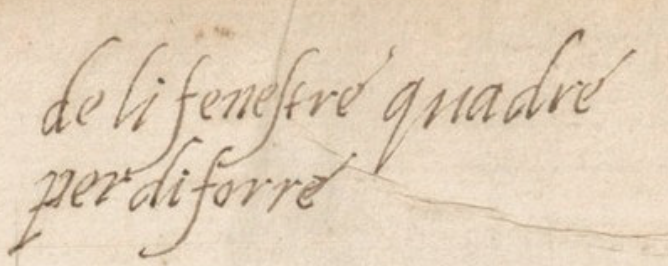 de li fenestre quadre
per di forre